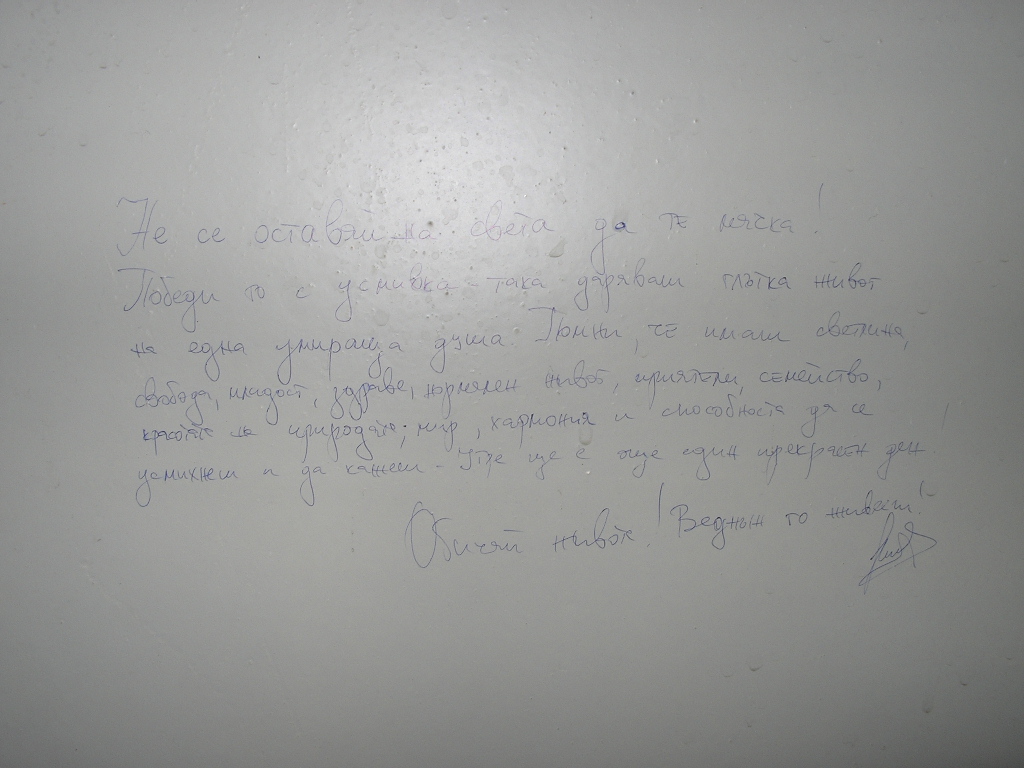 Не се оставяй на света да те мачка!
Победи го с усмивка - така даряваш глътка живот
на една умираща душа. Помни, че имаш светлина,
свобода, младост, здраве, нормален живот, приятели, семейство,
красотата на природата, мир, хармония и способността да се
усмихнеш и да кажеш - Утре ще е още един прекрасен ден!
Обичай живота! Веднъж го живееш!